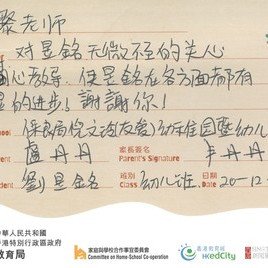 黎老师
对昱銘无微不至的关心
心教导，使昱銘在各方面都有
的进步！謝謝你！
保良局
幼稚園暨幼儿
chool
盧丹丹
家長簽名
Parent's Signature
丹丹
劉昱銘
班別
Class
幼儿班
日期
Date
20-12-
中華人民共和國
香港特別行政區政府
教育局
家庭與學校合作事宜委員會
Committee on Home-School Co-operation
香港教育城
HKedCity